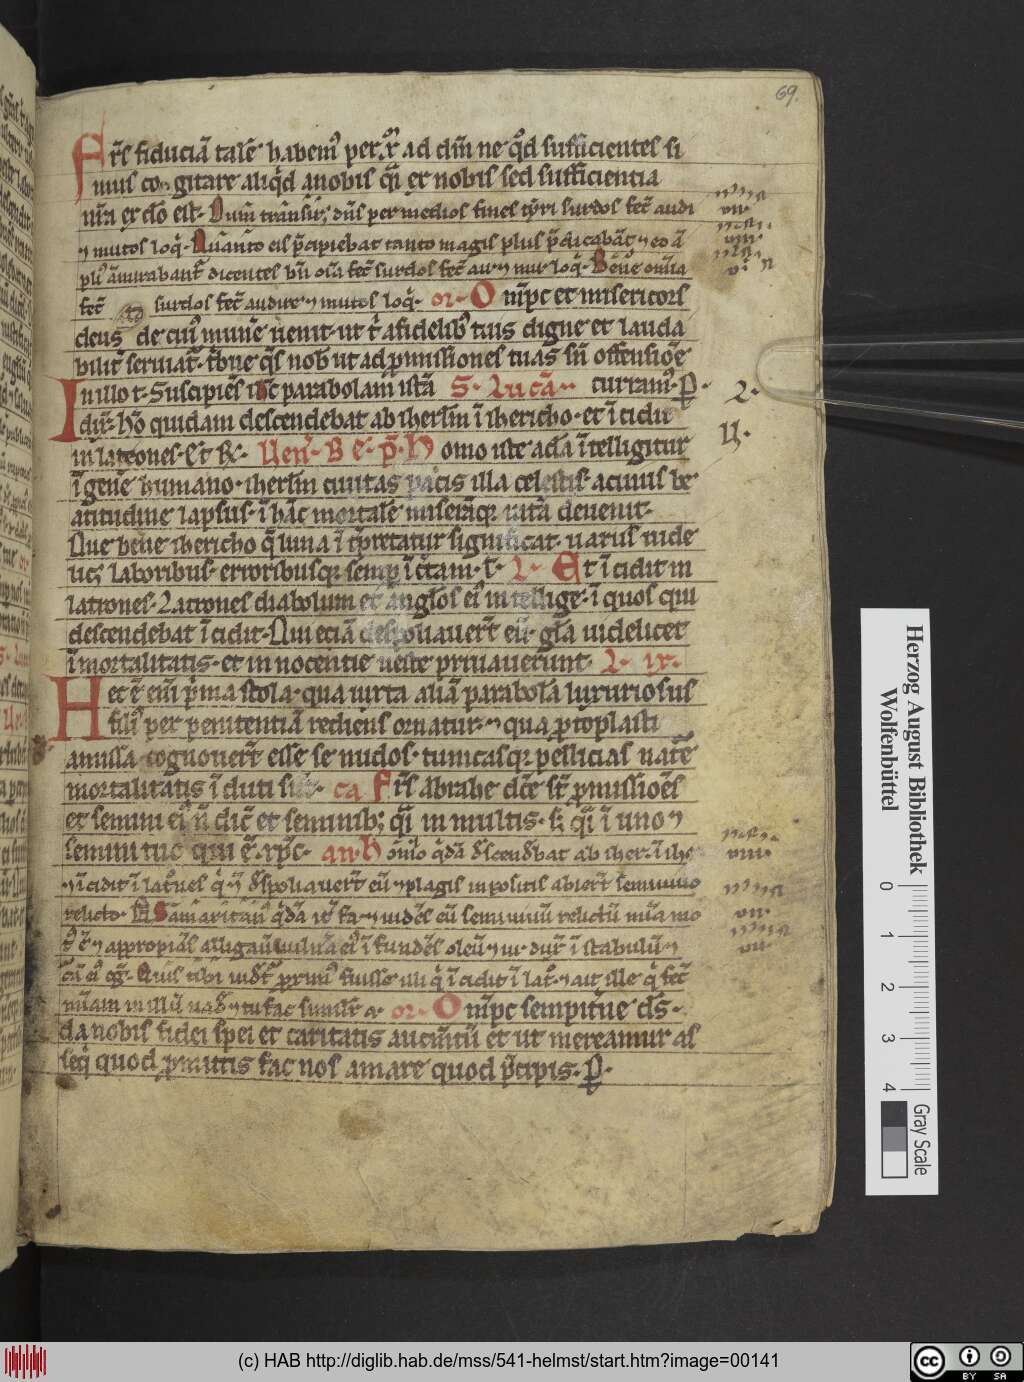 69.
Fr̄s fiduciā talē habem᷒ per xp̄m ad dm̄ ne qͦd sufficientes si
mus cogitare aliqͥd anobis q̄i ex nobis sed sufficientia
nr̄a ex dō est. Dum transir&; dn̄s per medios fines tyri surdos fec̄ audi
⁊ mutos loq̄. Quanto eis p̄cipiebat tanto magis plus p̄dicabāt ⁊ eo ā
pli᷒ āmirabant᷑ dicentes bn̄ oīa fec̄ surdos fec̄ au ⁊ mu loq̄. Bene omīa
fec̄ surdos fec̄ audire ⁊ mutos loq̄. or. Omp̄c et misericors
deus de cui᷒ mune uenit ut t᷑ a fidelib᷒ tuis digne et lauda
bilit̄ seruiat᷑. t᷑bue qs̄ nob᷒ ut ad p̄missiones tuas sn̄ offensiōe
In illo t. Suscipiēs ih̄c parabolam istā S. Lucā. curram᷒. P.
L.
dix̄. hō quidam descendebat ab iherlm̄ ī ihericho. et īcidit
in latrones. Et R̄c. Uen᷒. Bē. p̄. Homo iste adā ītelligitur
ī gen̄e humano. iherlm̄ ciuitas pacis illa celestis. a cuius be
atitudine lapsus. ī hāc mortalē miserāqꝫ uitā deuenit.
Que bene ihericho q̄ luna īt᷑pretatur significat. uariis uide
licꝫ laboribus. erroribusqꝫ semp īctam. L. Et īcidit in
latrones. Latrones diabolum et angłos ei᷒ intellige. ī quos qui
descendebat īcidit. Qui eciā despoliauert̄ eū. gła uidelicet
īmortalitatis. et innocentie ueste priuauerunt. L. ix.
Hec ē eni p̄ma stola. qua iuxta aliā parabolā luxuriosus
fili᷒ per penitentiā rediens ornatur. ⁊ qua p̄toplasti
amissa cognouert̄ esse se nudos. tunicasqꝫ pellicias nat̄e
mortalitatis īduti sūt. ca Fr̄s Abrahe dc̄e st̄ p̄missiōes
et semini ei᷒. n̄ dic̄ et seminibꝫ q̄i in multis. sꝫ q̄i ī uno ⁊
semini tuo qui ē xp̄c. an. Homo qͥdā dscendbat ab iher. ī ihe
⁊ īcidit ī latnes q̄ ⁊ dspoliauert̄ eū ⁊ plagis inpositis abiert̄ semiuiuo
relicto. Samaritan᷒ qͥdā it᷑ fa ⁊ uidēs eū semiuiuū relictū mīa mo
t᷒ ē ⁊ appropiās alligauit uulnā ei᷒ ī fundēs oleū ⁊ ui. dux̄ ī stabulū ⁊
cā ei᷒ eg. Quis tibi uid᷑t᷑ p̄xim᷒ fuisse illi q̄ īcidit ī lat᷒. ⁊ ait ille q̄ fec̄
mīam in illū uad ⁊ tu fac similr̄. or. Omp̄c sempit̄ne ds̄.
da nobis fidei spei et caritatis aumtū et ut mereamur as
seqͥ quod p̄mittis fac nos amare quod p̄cipis. P.
Herzog August Bibliothek
Wolfenbüttel
0 1 2 3 4
Gray Scale
(c) HAB http://diglib.hab.de/mss/541-helmst/start.htm?image=00141
cc BY SA